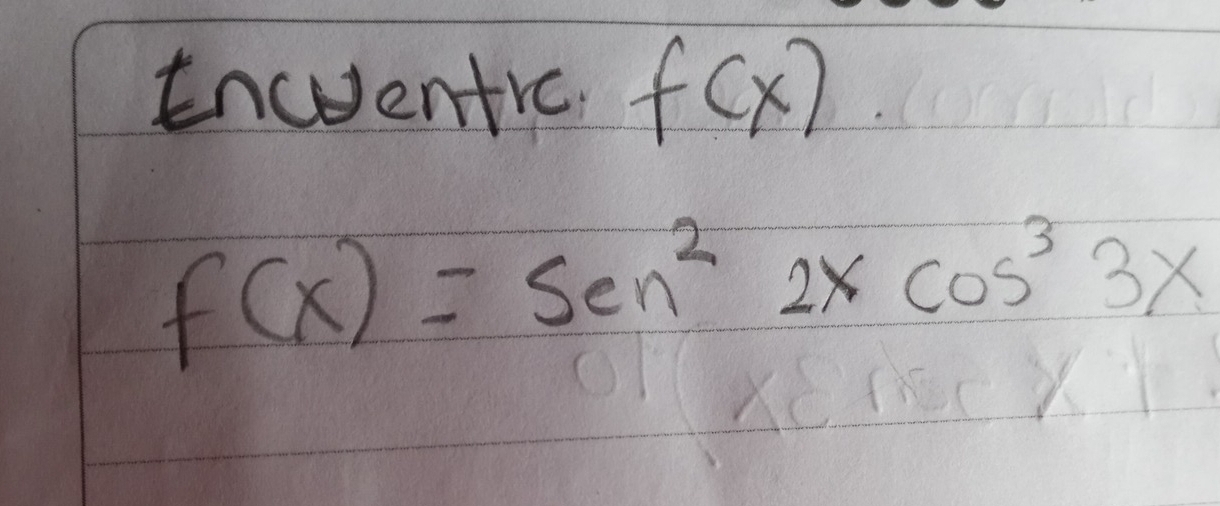 Encuentre. f(x).
f(x) = Sen² 2x cos³ 3x